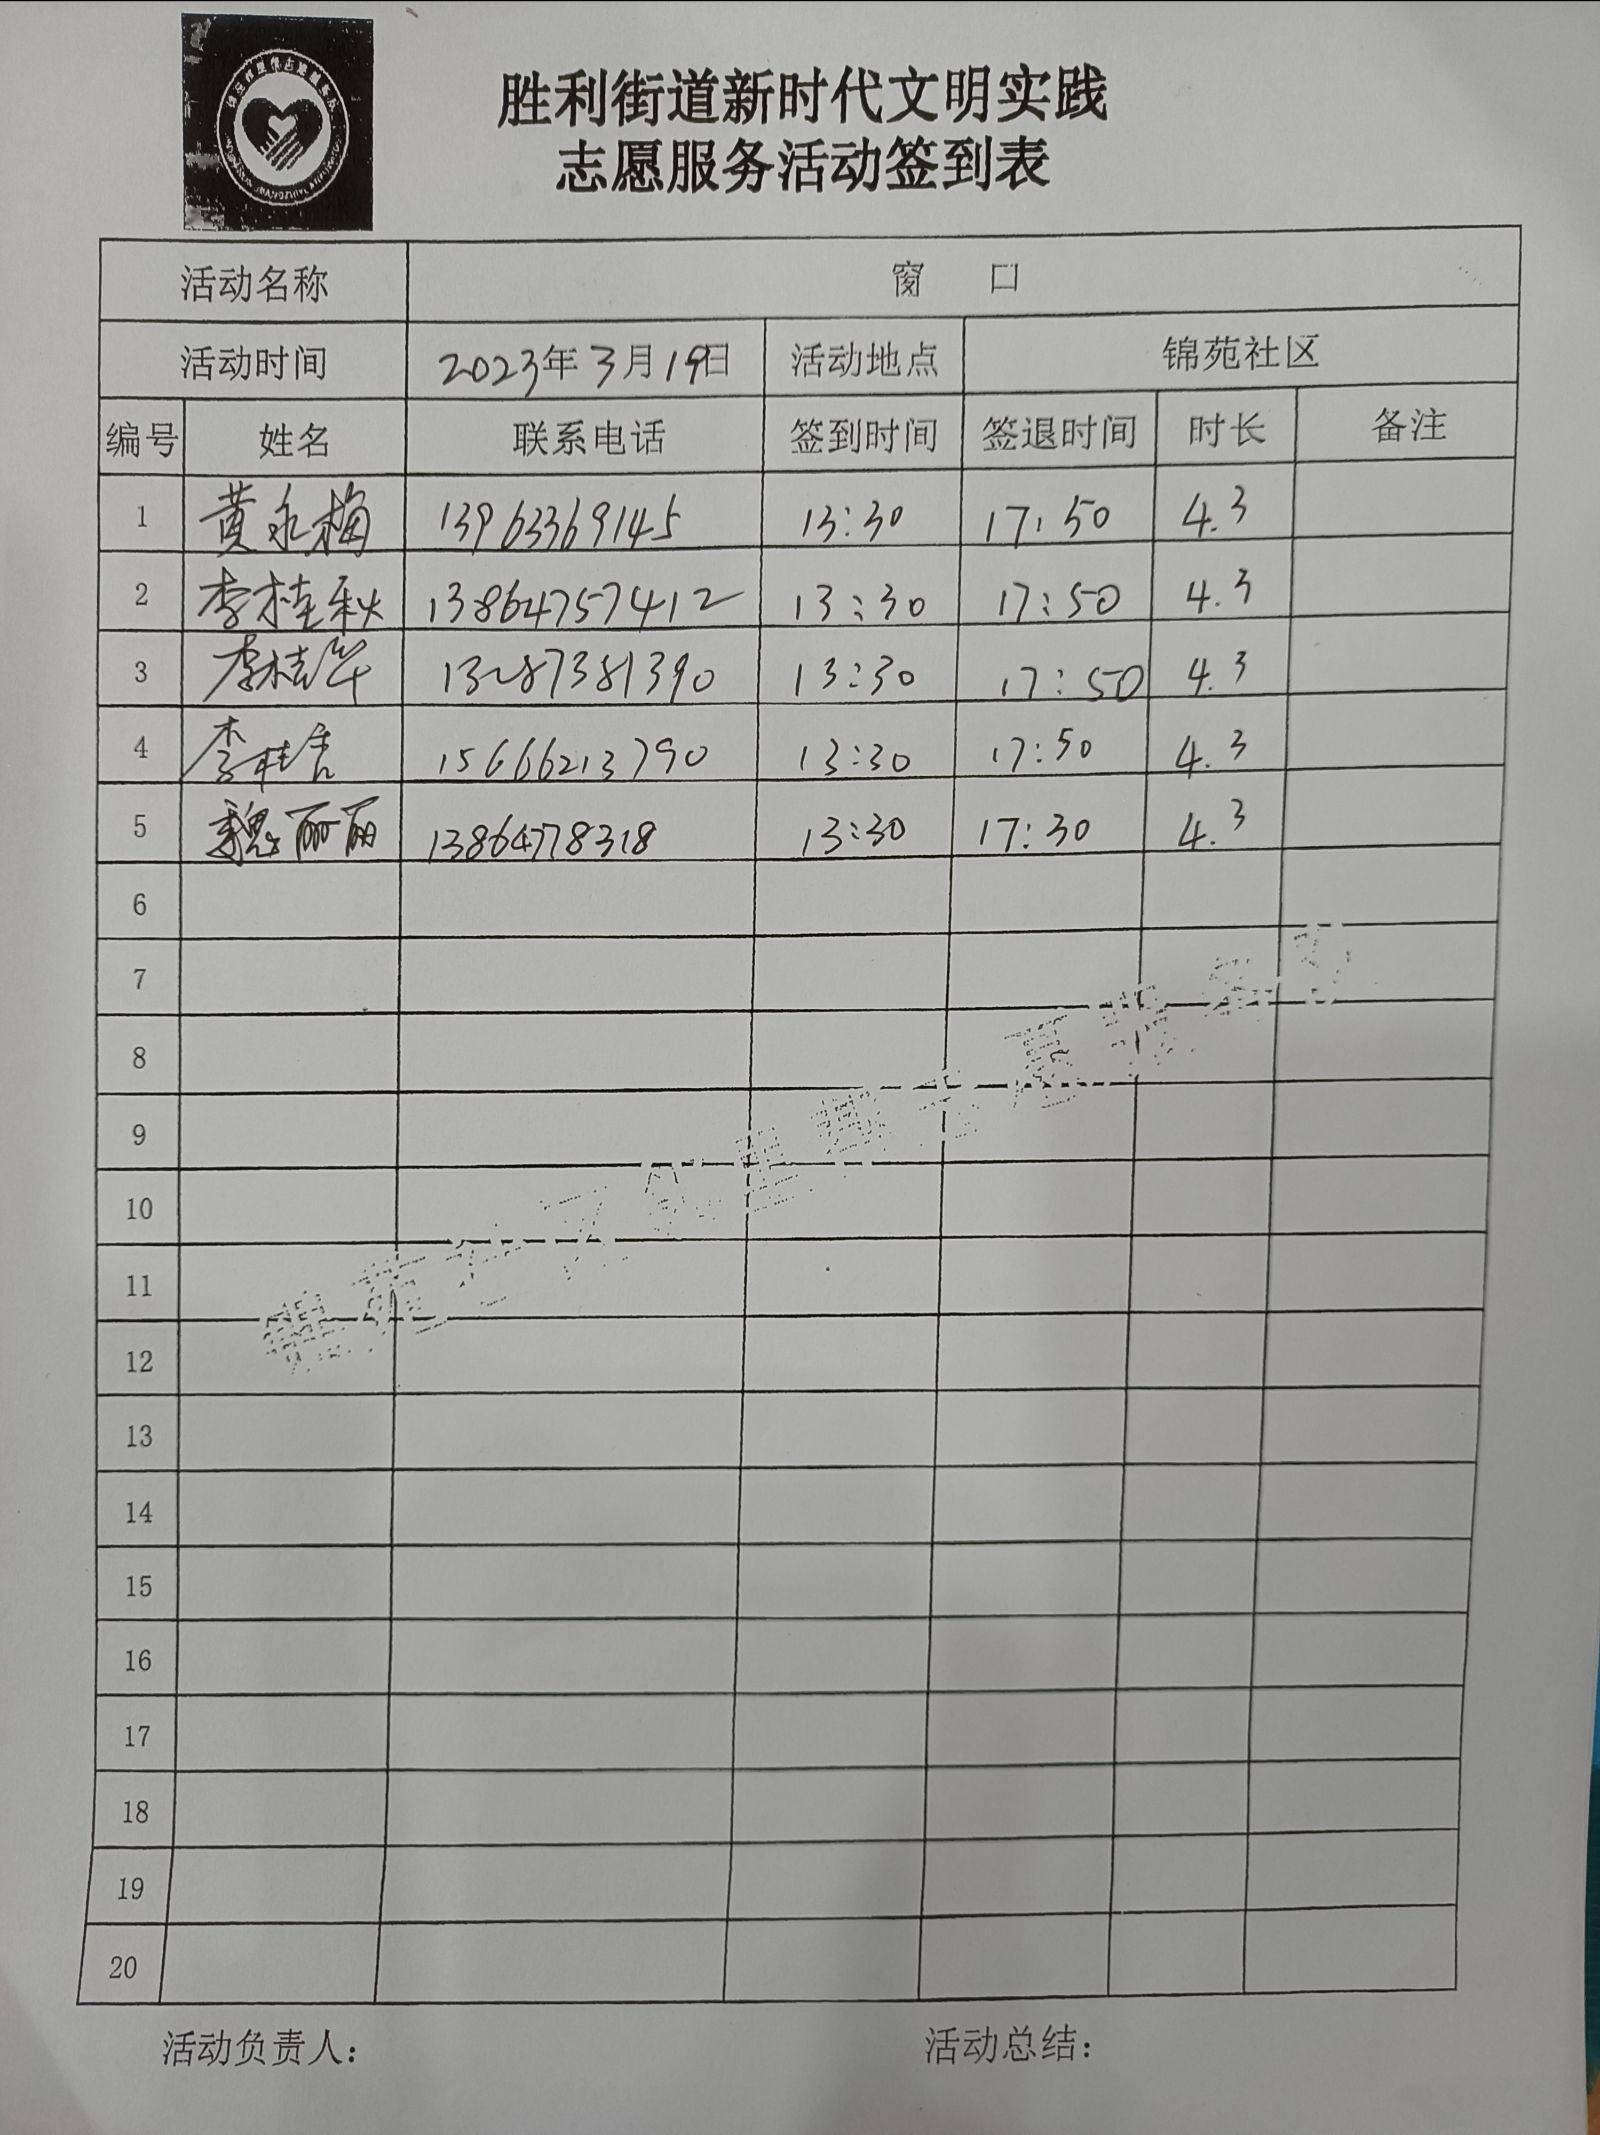 胜利街道新时代文明实践
志愿服务活动签到表
活动名称 窗 口
活动时间 2023年3月19日 活动地点 锦苑社区
编号 姓名 联系电话 签到时间 签退时间 时长 备注
1 黄永梅 13963369145 13:30 17:50 4.3
2 李桂秋 13864757412 13:30 17:50 4.3
3 李桂华 13287381390 13:30 17:50 4.3
4 李桂香 15666213790 13:30 17:50 4.3
5 魏丽丽 13864778318 13:30 17:30 4.3
6
7
8
9
10
11
12
13
14
15
16
17
18
19
20
活动负责人： 活动总结：